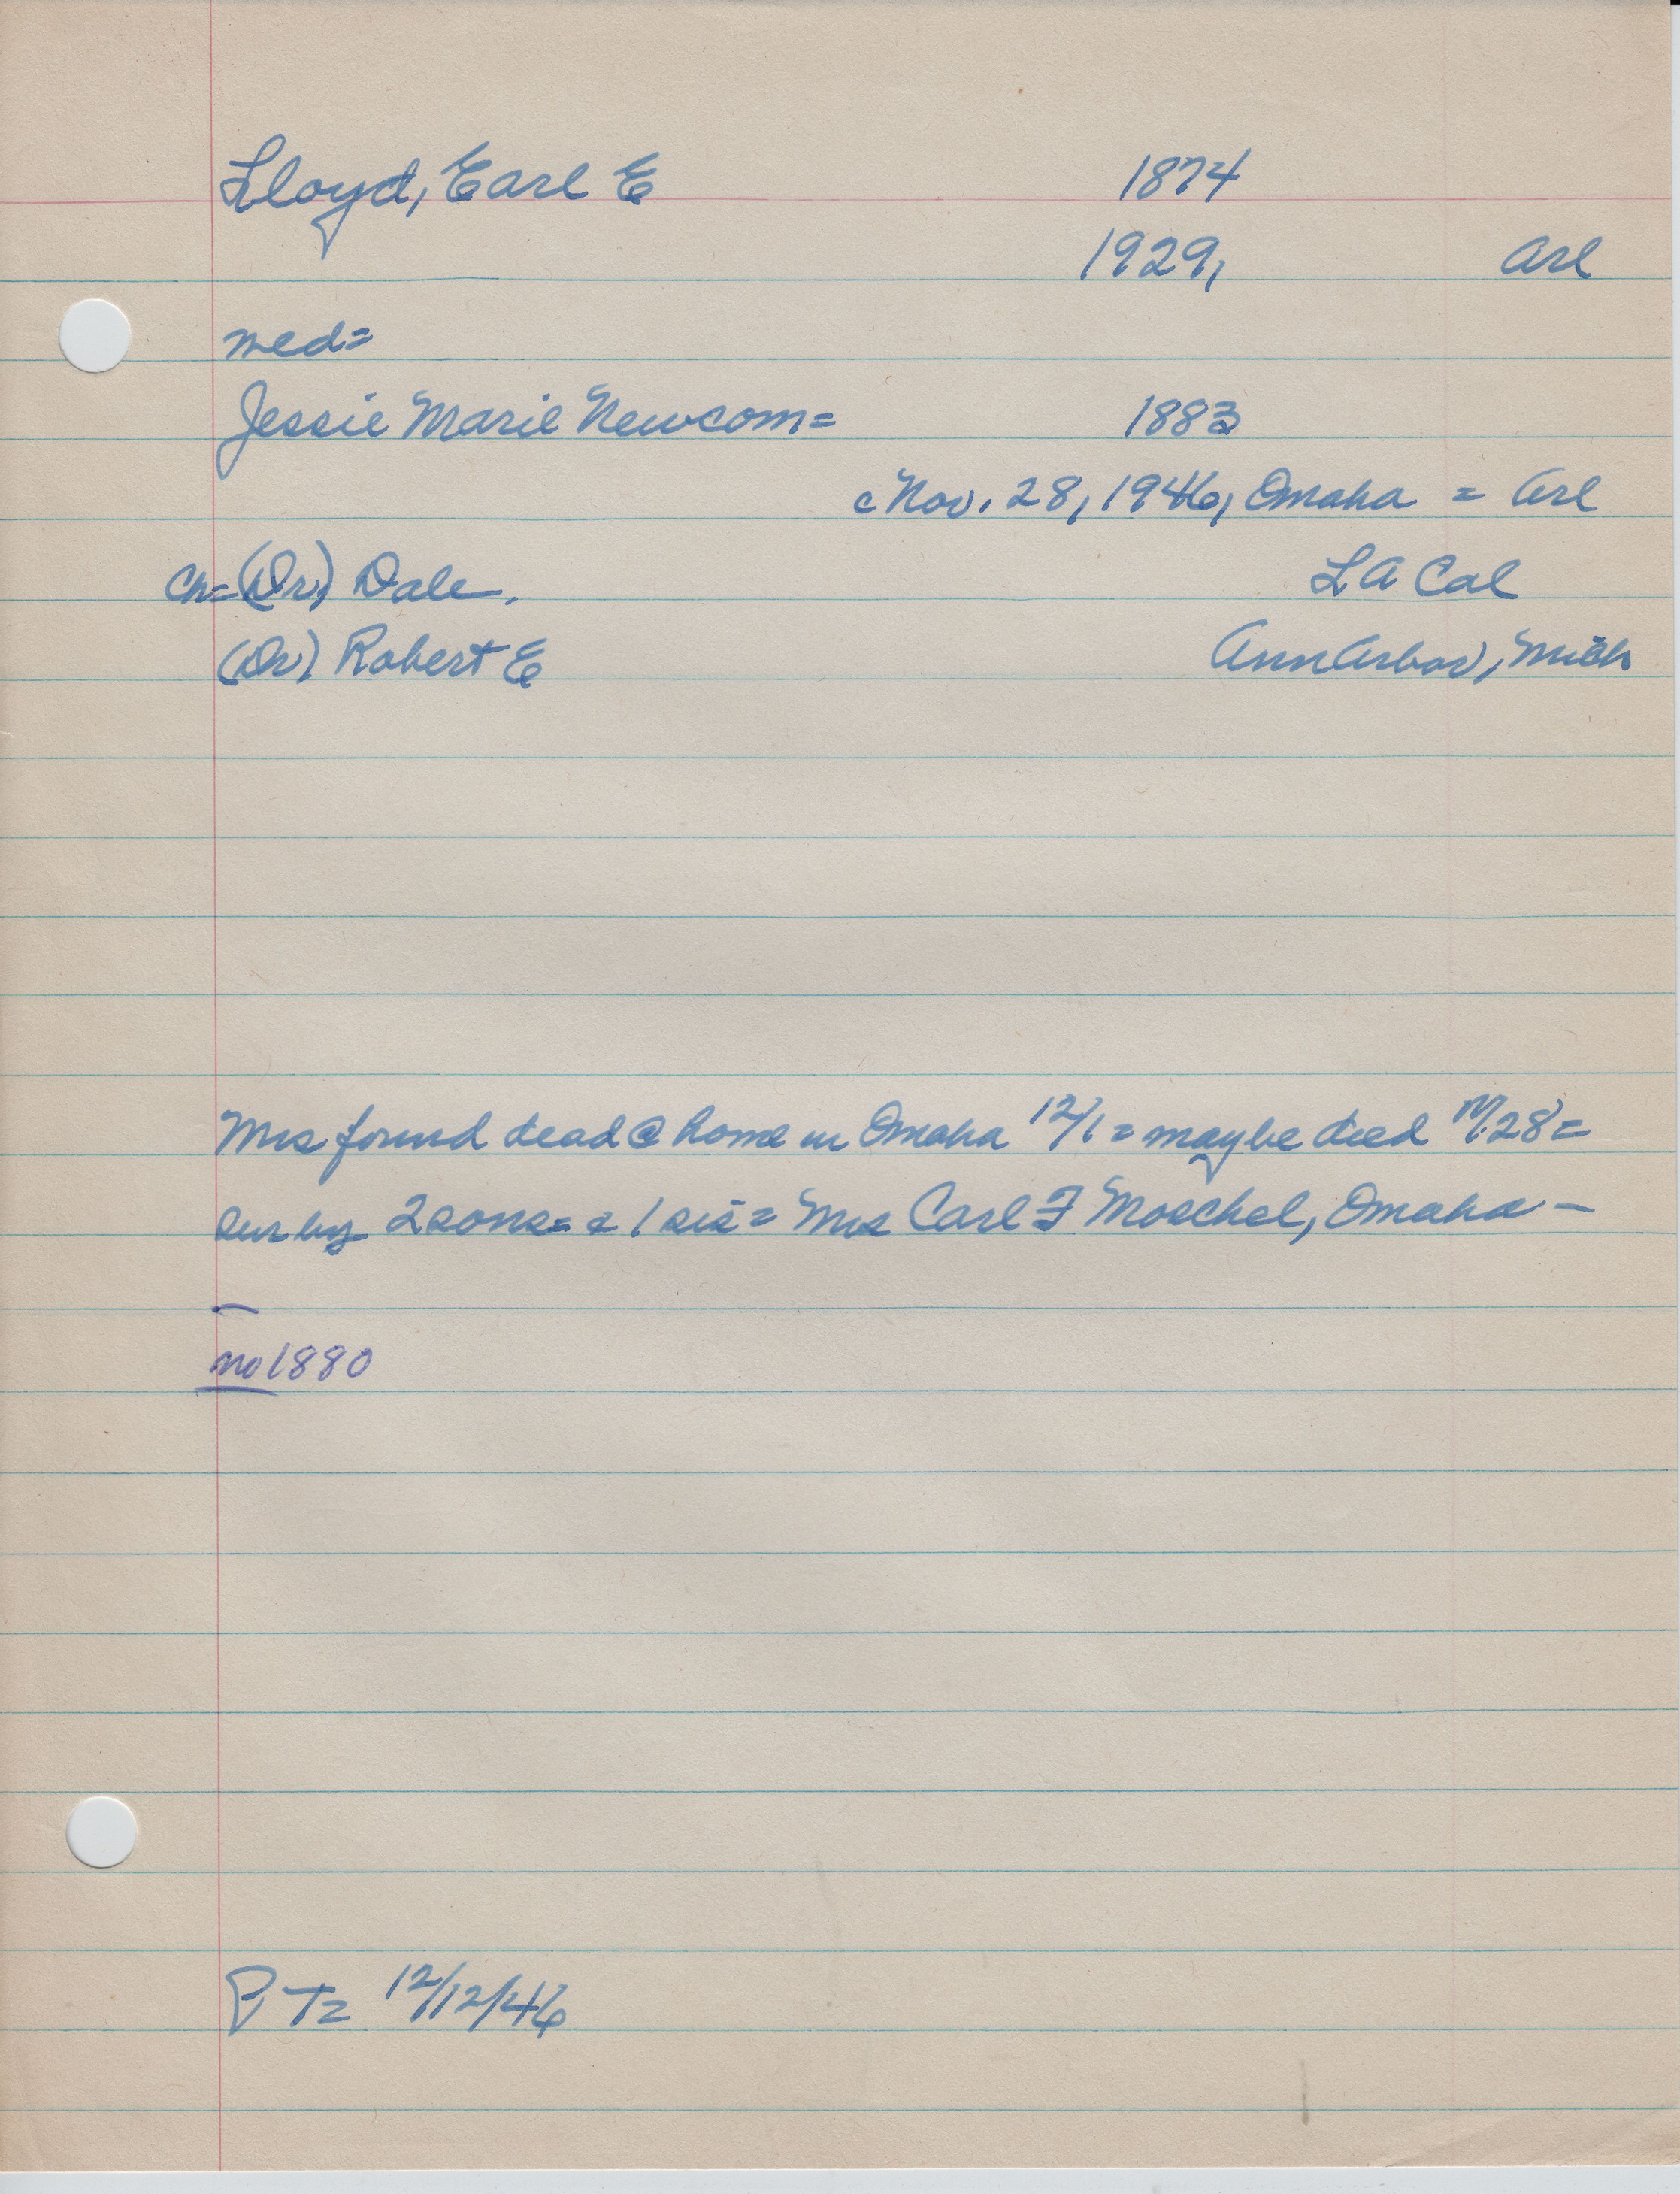 Lloyd, Earl E 1874
1929, Arl
med=
Jessie Marie Newcom= 1883
c Nov. 28, 1946, Omaha = Arl
Ch=(Dr.) Dale, LA Cal
(Dr) Robert E Ann Arbor, Mich
Mrs found dead @ home in Omaha 12/1 = maybe died 11/28 =
sur by 2 sons= & 1 sis = Mrs Carl F Moschel, Omaha -
no 1880
P T= 12/12/46